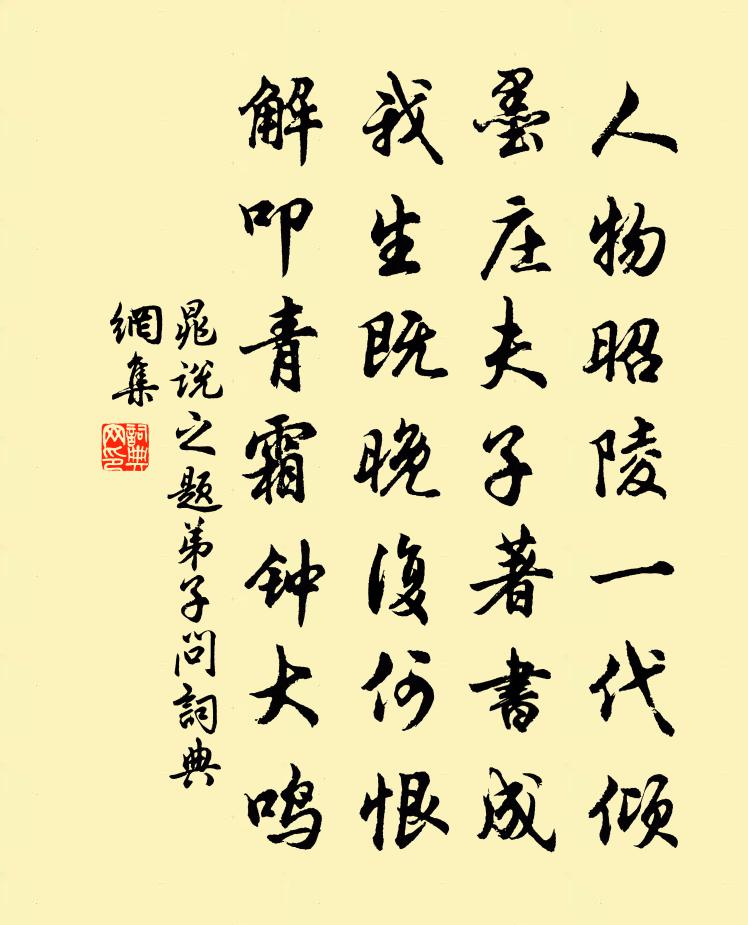 人物昭陵一代倾
墨庄夫子著書成
我生既晚復何恨
解叩青霜钟大鸣
晁说之题弟子问詞典
網集
詞典
网印